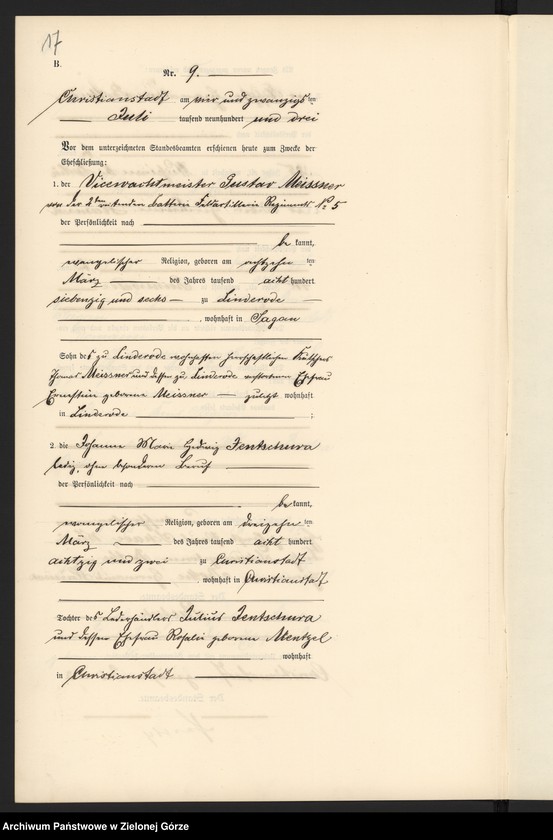 17
B.
Nr. 9.
Christianstadt am vier und zwanzigsten
Juli tausend neunhundert und drei
Vor dem unterzeichneten Standesbeamten erschienen heute zum Zwecke der
Eheschließung:
1. der Vicewachtmeister Gustav Meissner
von der 2ten reitenden Batterie Feldartillerie Regiments No 5
der Persönlichkeit nach
be kannt,
evangelischer Religion, geboren am achtzehnten
März des Jahres tausend acht hundert
siebenzig und sechs zu Linderode
, wohnhaft in Sagan
Sohn des zu Linderode wohnhaften herrschaftlichen Kutschers
Thomas Meissner und dessen zu Linderode verstorbenen Ehefrau
Ernestine geborene Meissner zuletzt wohnhaft
in Linderode ;
2. die Johanna Marie Hedwig Jentschura
ledig, ohne besonderen Beruf
der Persönlichkeit nach
be kannt,
evangelischer Religion, geboren am dreizehnten
März des Jahres tausend acht hundert
achtzig und zwei zu Christianstadt
, wohnhaft in Christianstadt
Tochter des Lederhändlers Julius Jentschura
und dessen Ehefrau Rosalie geborene Mentzel
wohnhaft
in Christianstadt
Archiwum Państwowe w Zielonej Górze